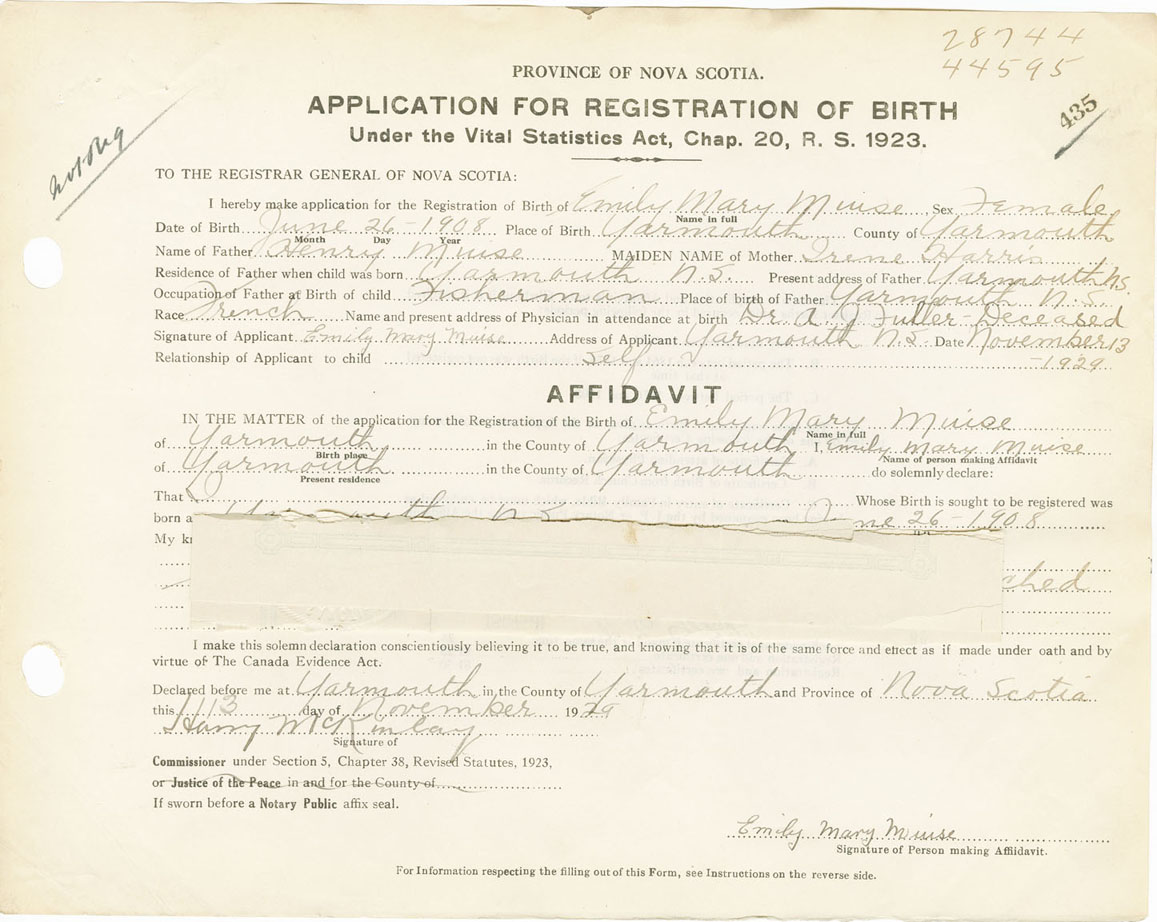 28744
44595
435
Not Reg
PROVINCE OF NOVA SCOTIA.
APPLICATION FOR REGISTRATION OF BIRTH
Under the Vital Statistics Act, Chap. 20, R. S. 1923.
TO THE REGISTRAR GENERAL OF NOVA SCOTIA:
I hereby make application for the Registration of Birth of Emily Mary Muise Sex Female
Name in full
Date of Birth June 26-1908 Place of Birth Yarmouth County of Yarmouth
Month Day Year
Name of Father Henry Muise MAIDEN NAME of Mother Irene Harris
Residence of Father when child was born Yarmouth N.S. Present address of Father Yarmouth N.S.
Occupation of Father at Birth of child Fisherman Place of birth of Father Yarmouth N.S.
Race French Name and present address of Physician in attendance at birth Dr. A. J. Fuller - Deceased
Signature of Applicant Emily Mary Muise Address of Applicant Yarmouth N.S. Date November 13
Relationship of Applicant to child Self -1929
AFFIDAVIT
IN THE MATTER of the application for the Registration of the Birth of Emily Mary Muise
Name in full
of Yarmouth in the County of Yarmouth I, Emily Mary Muise
Birth place Name of person making Affidavit
of Yarmouth in the County of Yarmouth do solemnly declare:
Present residence
That Whose Birth is sought to be registered was
born a Yarmouth N S June 26-1908
My k
ched
I make this solemn declaration conscientiously believing it to be true, and knowing that it is of the same force and effect as if made under oath and by
virtue of The Canada Evidence Act.
Declared before me at Yarmouth in the County of Yarmouth and Province of Nova Scotia
this 13 day of November 1929
Harry McKinlay
Signature of
Commissioner under Section 5, Chapter 38, Revised Statutes, 1923,
or Justice of the Peace in and for the County of
If sworn before a Notary Public affix seal.
Emily Mary Muise
Signature of Person making Affidavit.
For Information respecting the filling out of this Form, see Instructions on the reverse side.